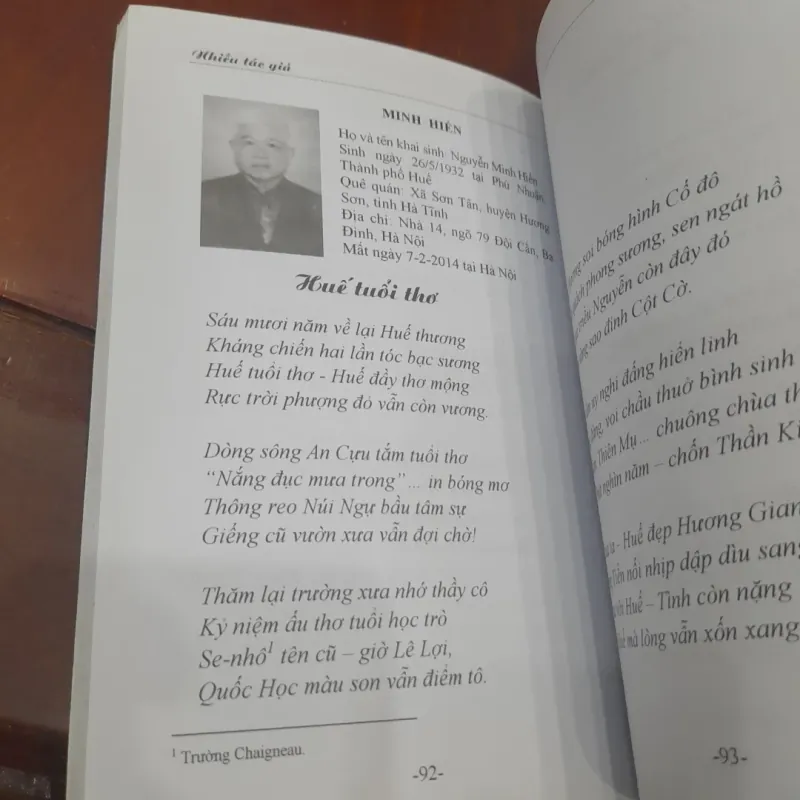 Nhiều tác giả
MINH HIỀN
Họ và tên khai sinh: Nguyễn Minh Hiền
Sinh ngày 26/5/1932 tại Phú Nhuận,
Thành phố Huế
Quê quán: Xã Sơn Tân, huyện Hương
Sơn, tỉnh Hà Tĩnh
Địa chỉ: Nhà 14, ngõ 79 Đội Cấn, Ba
Đình, Hà Nội
Mất ngày 7-2-2014 tại Hà Nội
Huế tuổi thơ
Sáu mươi năm về lại Huế thương
Kháng chiến hai lần tóc bạc sương
Huế tuổi thơ - Huế đầy thơ mộng
Rực trời phượng đỏ vẫn còn vương.
Dòng sông An Cựu tắm tuổi thơ
“Nắng đục mưa trong”... in bóng mơ
Thông reo Núi Ngự bầu tâm sự
Giếng cũ vườn xưa vẫn đợi chờ!
Thăm lại trường xưa nhớ thầy cô
Kỷ niệm ấu thơ tuổi học trò
Se-nhô¹ tên cũ – giờ Lê Lợi,
Quốc Học màu son vẫn điểm tô.
¹ Trường Chaigneau.
-92-
soi bóng hình Cố đô
phong sương, sen ngát hồ
triều Nguyễn còn đây đó
sao đỉnh Cột Cờ.
uy nghi đấng hiển linh
voi chầu thuở bình sinh
Thiên Mụ... chuông chùa
nghìn năm – chốn Thần
- Huế đẹp Hương Gian
Tiền nối nhịp dập dìu
Huế – Tình còn nặng
mà lòng vẫn xốn xang
-93-